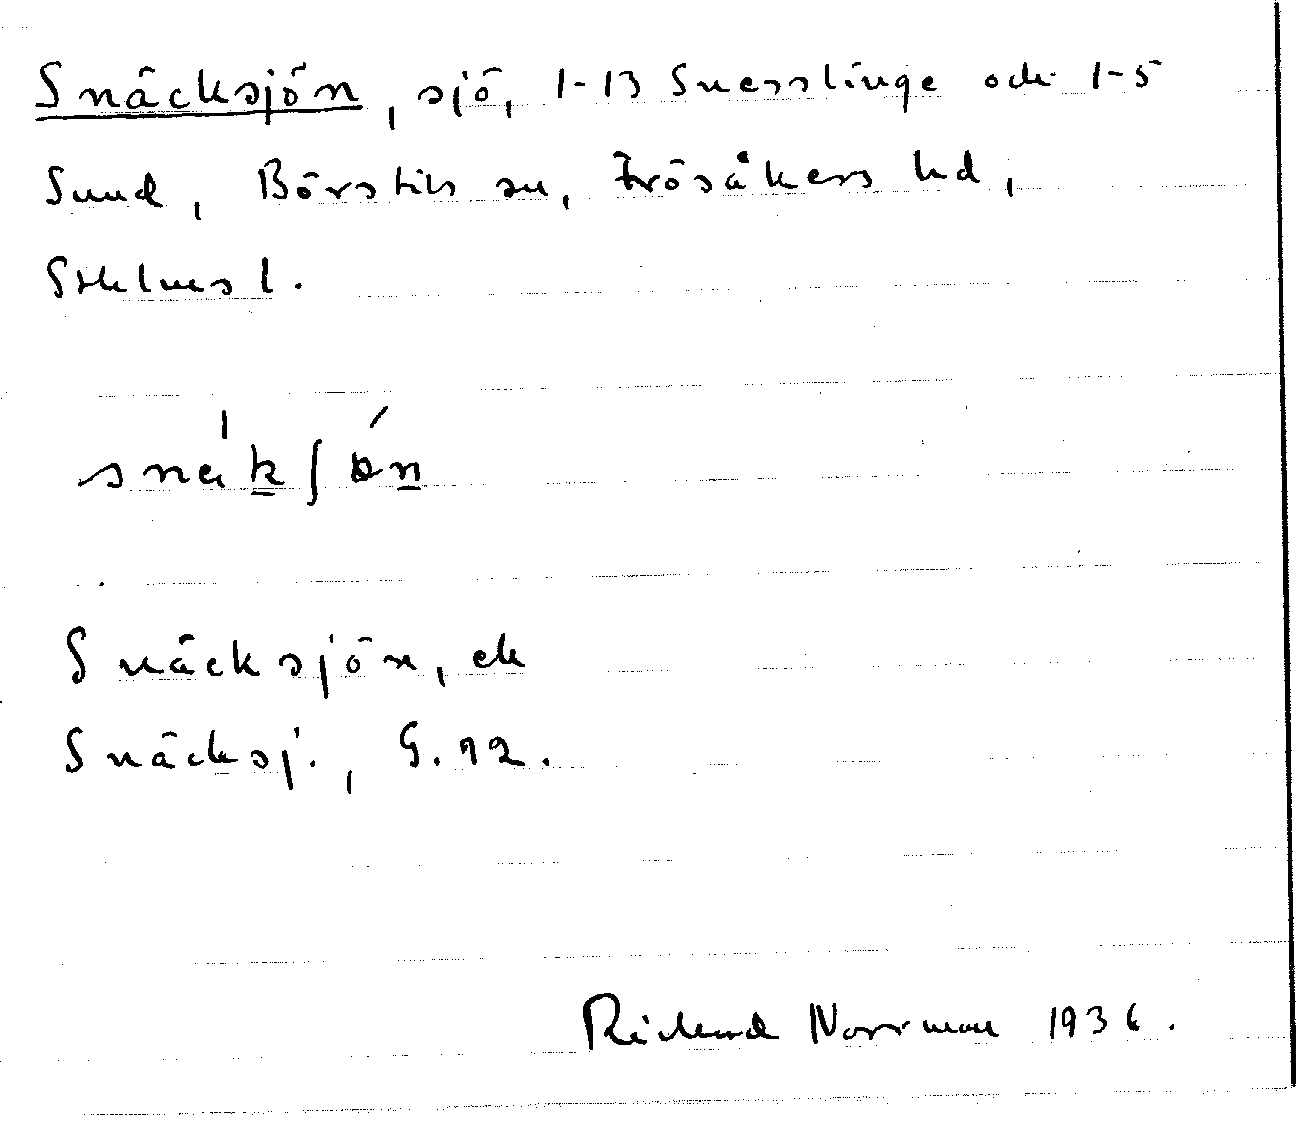 Snäcksjön, sjö, 1-13 Snesslinge och 1-5
Sund, Börstils sn, Frösåkers hd,
Sthlms l.
snäkʃön
Snäcksjön, ek
Snäcksj., G. 12.
Rickard Norrman 1936.